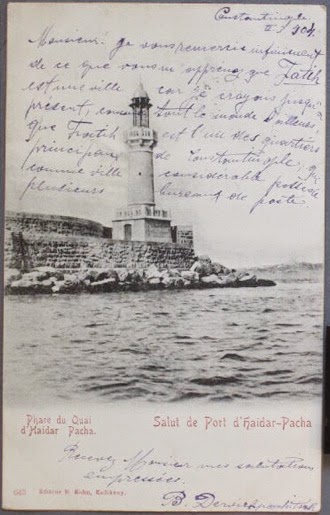 Constantinople
904
Monsieur. Je vous remercie infiniment
de ce que vous m'apprenez que Fatih
est une ville car je croyais jusqu'à
présent, comme tout le monde d'ailleurs,
que Fatih est un des quartiers
principaux de Constantinople, et
comme ville considérable possède
plusieurs bureaux de poste
Phare du Quai
d'Haidar Pacha.
Salut de Port d'Haidar-Pacha
Recevez Monsieur mes salutations
empressées.
B.
643 Editeur B. Kohn, Kadikeuy.